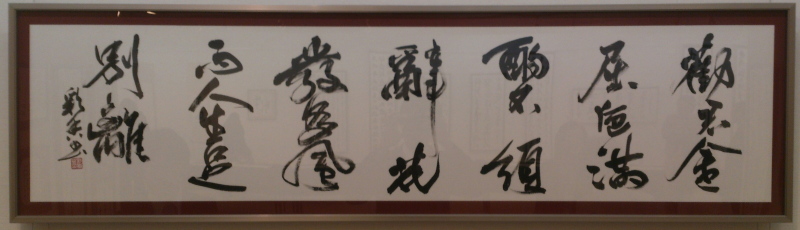 勸君金
屈卮滿
酌不須
辭花
發多風
雨人生足
別離